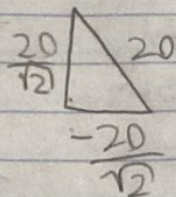 20/√2
20
-20/√2